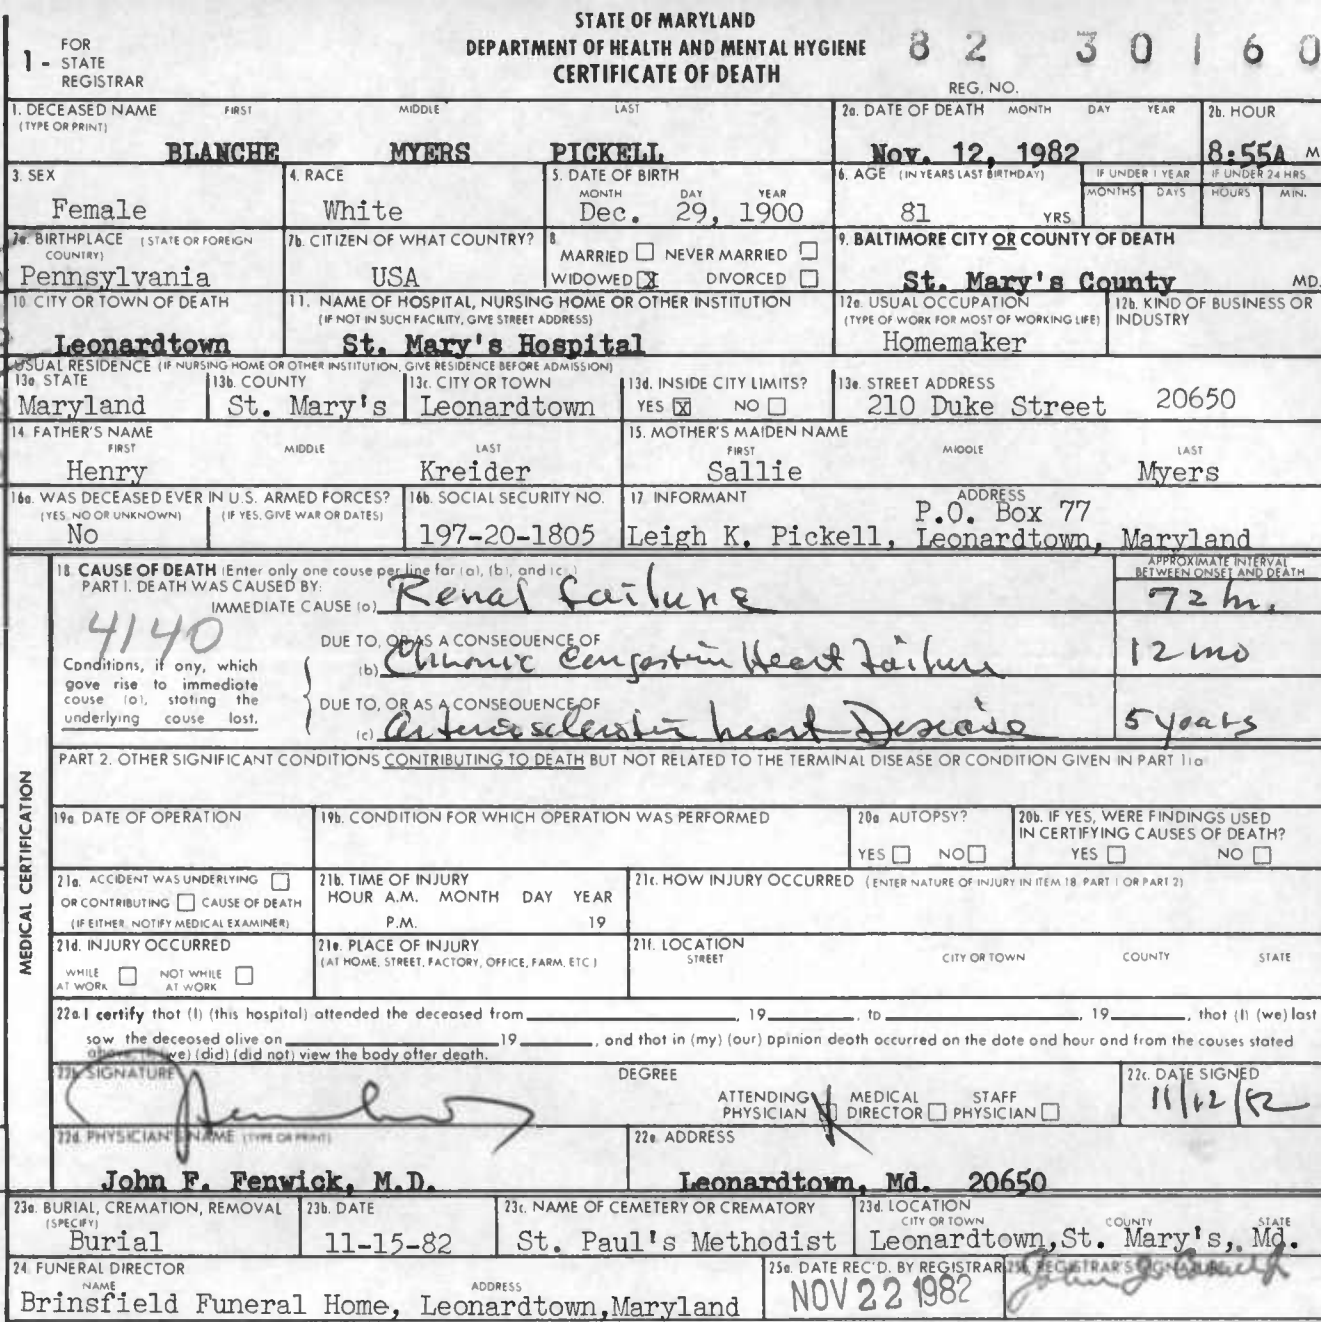 STATE OF MARYLAND
DEPARTMENT OF HEALTH AND MENTAL HYGIENE
CERTIFICATE OF DEATH
1 - FOR STATE REGISTRAR
82 30160
REG. NO.
1. DECEASED NAME (TYPE OR PRINT) FIRST MIDDLE LAST
BLANCHE MYERS PICKELL
2a. DATE OF DEATH MONTH DAY YEAR
Nov. 12, 1982
2b. HOUR
8:55A M
3. SEX
Female
4. RACE
White
5. DATE OF BIRTH
MONTH DAY YEAR
Dec. 29, 1900
6. AGE (IN YEARS LAST BIRTHDAY)
81 YRS
IF UNDER 1 YEAR
MONTHS DAYS
IF UNDER 24 HRS
HOURS MIN.
7a. BIRTHPLACE (STATE OR FOREIGN COUNTRY)
Pennsylvania
7b. CITIZEN OF WHAT COUNTRY?
USA
8
MARRIED NEVER MARRIED
WIDOWED X DIVORCED
9. BALTIMORE CITY OR COUNTY OF DEATH
St. Mary's County MD.
10. CITY OR TOWN OF DEATH
Leonardtown
11. NAME OF HOSPITAL, NURSING HOME OR OTHER INSTITUTION
(IF NOT IN SUCH FACILITY, GIVE STREET ADDRESS)
St. Mary's Hospital
12a. USUAL OCCUPATION
(TYPE OF WORK FOR MOST OF WORKING LIFE)
Homemaker
12b. KIND OF BUSINESS OR INDUSTRY
USUAL RESIDENCE (IF NURSING HOME OR OTHER INSTITUTION, GIVE RESIDENCE BEFORE ADMISSION)
13a. STATE
Maryland
13b. COUNTY
St. Mary's
13c. CITY OR TOWN
Leonardtown
13d. INSIDE CITY LIMITS?
YES X NO
13e. STREET ADDRESS
210 Duke Street 20650
14. FATHER'S NAME
FIRST MIDDLE LAST
Henry Kreider
15. MOTHER'S MAIDEN NAME
FIRST MIDDLE LAST
Sallie Myers
16a. WAS DECEASED EVER IN U.S. ARMED FORCES?
(YES, NO OR UNKNOWN) (IF YES, GIVE WAR OR DATES)
No
16b. SOCIAL SECURITY NO.
197-20-1805
17 INFORMANT ADDRESS
P.O. Box 77
Leigh K. Pickell, Leonardtown, Maryland
18 CAUSE OF DEATH (Enter only one cause per line for (a), (b), and (c).)
PART I. DEATH WAS CAUSED BY:
APPROXIMATE INTERVAL BETWEEN ONSET AND DEATH
IMMEDIATE CAUSE (a) Renal failure 72 hr.
4140
DUE TO, OR AS A CONSEQUENCE OF
(b) Chronic Congestive Heart Failure 12 mo
Conditions, if any, which
gave rise to immediate
cause (a), stating the
underlying cause last.
DUE TO, OR AS A CONSEQUENCE OF
(c) Arteriosclerotic heart Disease 5 years
PART 2. OTHER SIGNIFICANT CONDITIONS CONTRIBUTING TO DEATH BUT NOT RELATED TO THE TERMINAL DISEASE OR CONDITION GIVEN IN PART 1(a)
MEDICAL CERTIFICATION
19a DATE OF OPERATION
19b. CONDITION FOR WHICH OPERATION WAS PERFORMED
20a AUTOPSY?
YES NO
20b. IF YES, WERE FINDINGS USED
IN CERTIFYING CAUSES OF DEATH?
YES NO
21a. ACCIDENT WAS UNDERLYING
OR CONTRIBUTING CAUSE OF DEATH
(IF EITHER, NOTIFY MEDICAL EXAMINER)
21b. TIME OF INJURY
HOUR A.M. MONTH DAY YEAR
P.M. 19
21c. HOW INJURY OCCURRED (ENTER NATURE OF INJURY IN ITEM 18, PART 1 OR PART 2)
21d. INJURY OCCURRED
WHILE AT WORK NOT WHILE AT WORK
21e. PLACE OF INJURY
(AT HOME, STREET, FACTORY, OFFICE, FARM, ETC.)
21f. LOCATION
STREET CITY OR TOWN COUNTY STATE
22a. I certify that (I) (this hospital) attended the deceased from , 19 , to , 19 , that (I) (we) last
saw the deceased alive on 19 , and that in (my) (our) opinion death occurred on the date and hour and from the causes stated
above. (I) (we) (did) (did not) view the body after death.
22b. SIGNATURE
DEGREE
ATTENDING PHYSICIAN MEDICAL DIRECTOR STAFF PHYSICIAN
22c. DATE SIGNED
11/12/82
22d. PHYSICIAN'S NAME (TYPE OR PRINT)
John F. Fenwick, M.D.
22e. ADDRESS
Leonardtown, Md. 20650
23a. BURIAL, CREMATION, REMOVAL (SPECIFY)
Burial
23b. DATE
11-15-82
23c. NAME OF CEMETERY OR CREMATORY
St. Paul's Methodist
23d. LOCATION
CITY OR TOWN COUNTY STATE
Leonardtown, St. Mary's, Md.
24. FUNERAL DIRECTOR
NAME ADDRESS
Brinsfield Funeral Home, Leonardtown, Maryland
25a. DATE REC'D. BY REGISTRAR
NOV 22 1982
25b. REGISTRAR'S SIGNATURE